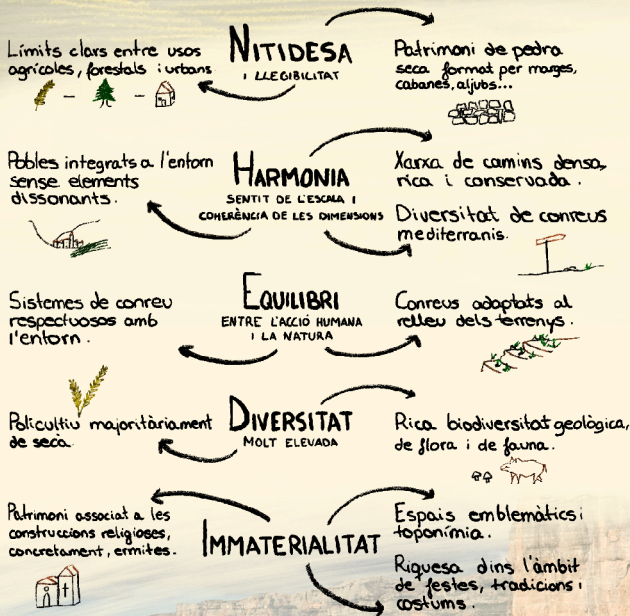 NITIDESA
I LLEGIBILITAT
Límits clars entre usos
agrícoles, forestals i urbans
Patrimoni de pedra
seca format per marges,
cabanes, aljubs...
HARMONIA
SENTIT DE L'ESCALA I
COHERÈNCIA DE LES DIMENSIONS
Pobles integrats a l'entorn
sense elements
dissonants.
Xarxa de camins densa,
rica i conservada.
Diversitat de conreus
mediterranis.
EQUILIBRI
ENTRE L'ACCIÓ HUMANA
I LA NATURA
Sistemes de conreu
respectuosos amb
l'entorn.
Conreus adaptats al
relleu dels terrenys.
DIVERSITAT
MOLT ELEVADA
Policultiu majoritàriament
de secà.
Rica biodiversitat geològica,
de flora i de fauna.
IMMATERIALITAT
Patrimoni associat a les
construccions religioses,
concretament, ermites.
Espais emblemàtics i
toponímia.
Riquesa dins l'àmbit
de festes, tradicions i
costums.